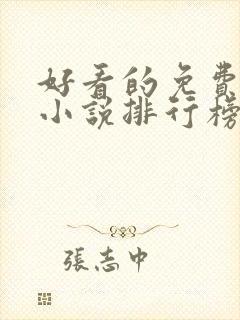 好看的免費
小說排行榜
張志中